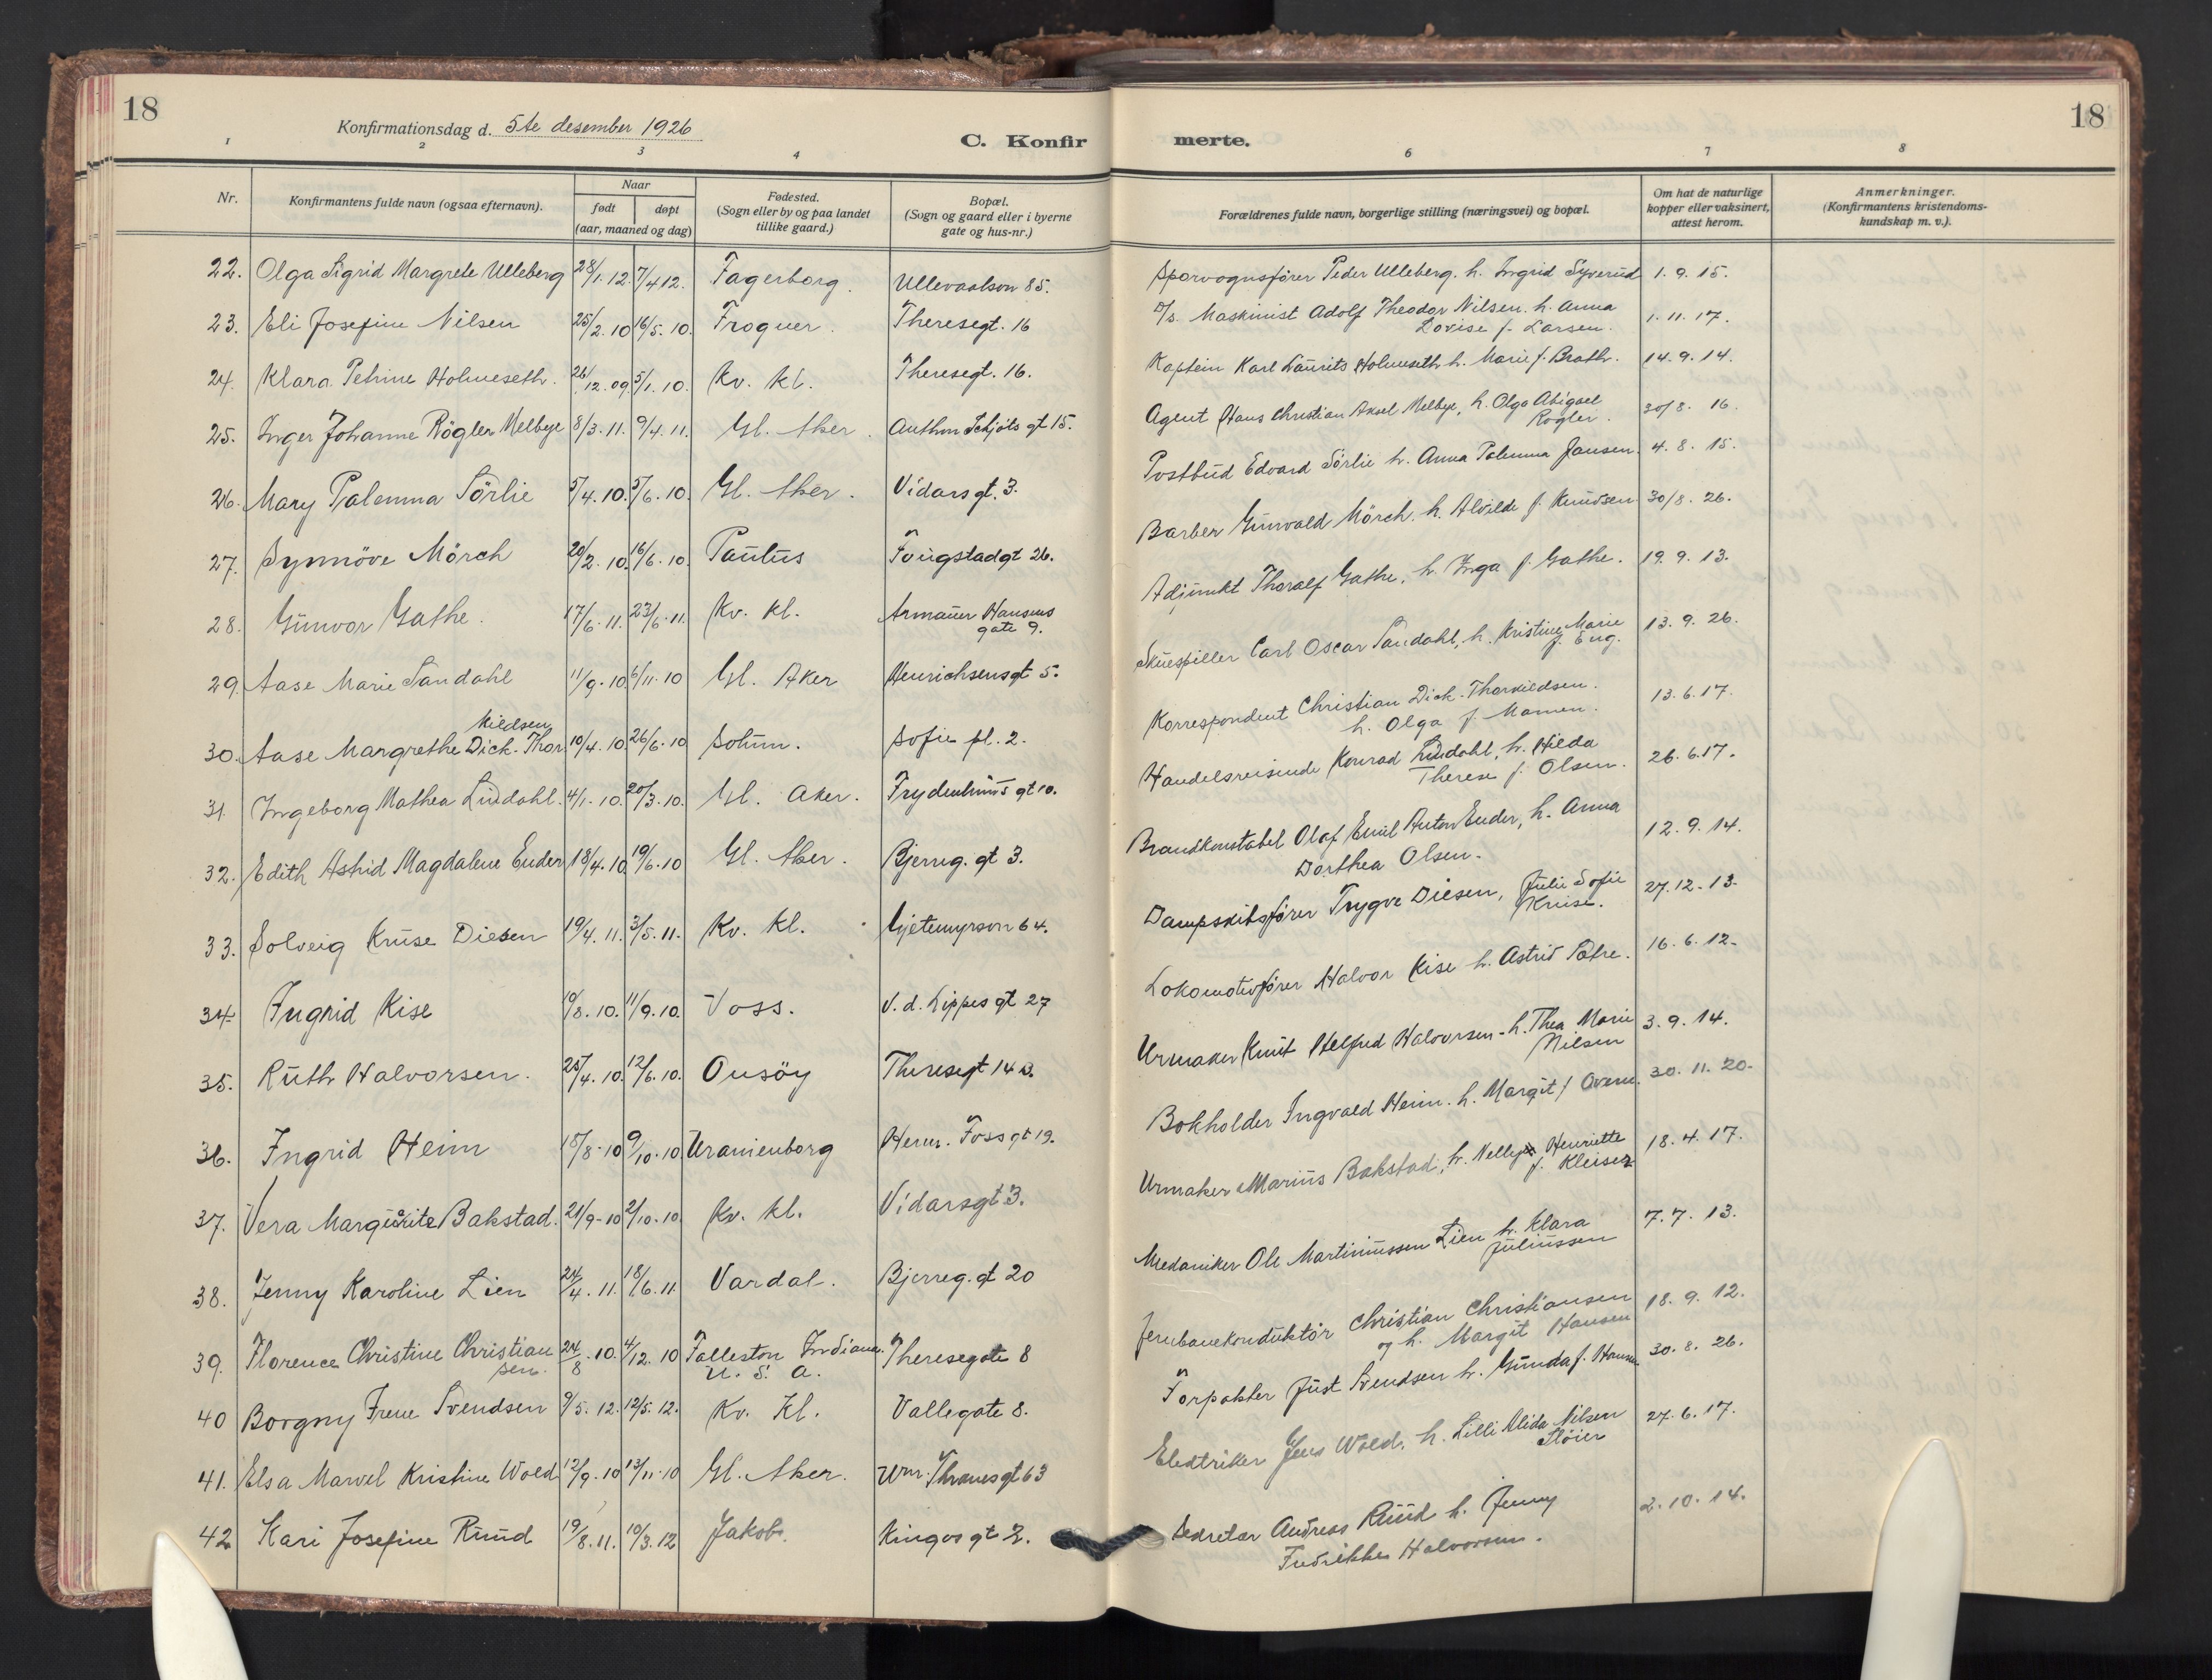 18
Konfirmationsdag d. 5te desember 1926
C. Konfir
1 2 3 4
Nr.
Konfirmantens fulde navn (ogsaa efternavn).
Naar
født døpt
(aar, maaned og dag)
Fødested.
(Sogn eller by og paa landet
tillike gaard.)
Bopæl.
(Sogn og gaard eller i byerne
gate og hus-nr.)
22. Olga Sigrid Margrete Ulleberg 28/1.12. 7/4 12. Fagerborg. Ullevaalsvn 85.
23. Eli Josefine Nilsen 25/2.10 16/5.10. Frogner. Theresegt. 16
24. Klara Petrine Holmeseth. 26/12.09 5/1.10. Kv. Kl. Theresegt. 16.
25. Inger Johanne Rögler Melbye 8/3.11. 9/4.11. Gl. Aker. Anthon Schjöts gt 15.
26. Mary Palemma Sörlie 5/4.10. 5/6.10. Gl. Aker. Vidars gt. 3.
27. Synnöve Mörch 20/2.10. 16/6.10. Paulus Fougstadgt 26.
28. Gunvor Gathe. 17/6.11. 23/6.11. Kv. Kl. Armauer Hansens
gate 9.
29. Aase Marie Sandahl 11/9.10 6/11.10 Gl. Aker Henrichsensgt 5.
kildsen
30. Aase Margrethe Dick-Thor 10/4.10. 26/6.10 Solum. Sofie pl. 2.
31. Ingeborg Mathea Lindahl. 4/1.10. 20/3.10. Gl. Aker. Frydenlunds gt 10.
32. Edith Astrid Magdalene Ender 18/4.10. 19/6.10 Gl. Aker. Bjerreg. gt 3.
33. Solveig Kruse Diesen 19/4.11. 3/5.11. Kv. Kl. Gjetemyrsvn 64.
34. Ingrid Kise 19/8.10. 11/9.10. Voss. V. d. Lippes gt 27
35. Ruth Halvorsen. 25/4.10. 12/6.10. Onsöy Theresegt 14
36. Ingrid Heim 18/8-10 9/10.10 Uranienborg Herm. Foss gt 19.
37. Vera Marguerite Bakstad. 21/9-10 2/10.10. Kv. Kl. Vidarsgt 3.
38. Jenny Karoline Lien 24/4.11. 18/6.11. Vardal. Bjerreg. gt 20
39. Florence Christine Christian 24/8.10. 4/12.10 Falleston Indiana. Theresegate 8
sen. U. S. A.
40 Borgny Irene Svendsen 9/5.12. 12/5.12. Kv. Kl. Vallegate 8.
41. Elsa Marvel Kristine Wold 12/9.10 13/11.10 Gl. Aker. Wm. Thranes gt 63
42 Kari Josefine Ruud 19/8.11. 10/3.12 Jakobs. Kingos gt 2.
18
merte.
6 7 8
Forældrenes fulde navn, borgerlige stilling (næringsvei) og bopæl.
Om hat de naturlige
kopper eller vaksinert,
attest herom.
Anmerkninger.
(Konfirmantens kristendoms-
kundskap m. v.).
Sporvognsfører Peder Ulleberg. h. Ingrid Syverud 1. 9. 15.
D/s. Maskinist Adolf Theodor Nilsen. h. Anna
Lovise f. Larsen. 1. 11. 17.
Kaptein Karl Laurits Holmeseth h. Marie f. Brath. 14. 9. 14.
Agent Hans Christian Aksel Melbye, h. Olga Abigael
Rögler. 30/8. 16.
Postbud Edvard Sörlie h. Anna Palemma Jansen. 4. 8. 15.
Barber Gunvald Mörch. h. Alvilde f. Knudsen 30/8. 26.
Adjunkt Thoralf Gathe, h. Inga f. Gathe. 19. 9. 13.
Skuespiller Carl Oscar Sandahl, h. Kristine Marie
f. Eng. 13. 9. 26.
Korrespondent Christian Dick-Thorkildsen.
h. Olga f. Mamen. 13. 6. 17.
Handelsreisende Konrad Lindahl, h. Hilda
Therese f. Olsen. 26. 6. 17.
Brandkonstabel Olaf Emil Anton Ender, h. Anna
Dorthea Olsen. 12. 9. 14.
Dampskibsfører Trygve Diesen, Julie Sofie
Kruse. 27. 12. 13.
Lokomotivfører Halvor Kise h. Astrid Sætre. 16. 6. 12.
Urmaker Knut Helfred Halvorsen - h. Thea Marie
Nilsen 3. 9. 14.
Bokholder Ingvald Heim. h. Margit f Overn 30. 11. 20.
Urmaker Marius Bakstad, h. Nelly Henriette
f. Kleiser 18. 4. 17.
Mekaniker Ole Martiniussen Lien h. Klara
Juliussen 7. 7. 13.
Jernbanekonduktör Christian Christiansen
og h. Margit Hansen 18. 9. 12.
Forpakter Just Svendsen h. Gunda f. Hansen 30. 8. 26.
Elektriker Jens Wold. h. Lilli Alida Nilsen
Slöier 27. 6. 17.
Sekretær Andreas Ruud h. Jenny
Fredrikke Halvorsen. 2. 10. 14.